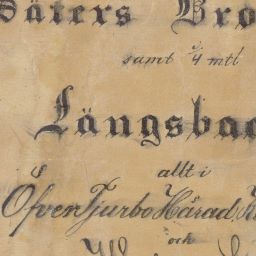 Säters Bro
samt 1/4 mtl
Längsbac
allt i
Öfver Tjurbo Härad,
och